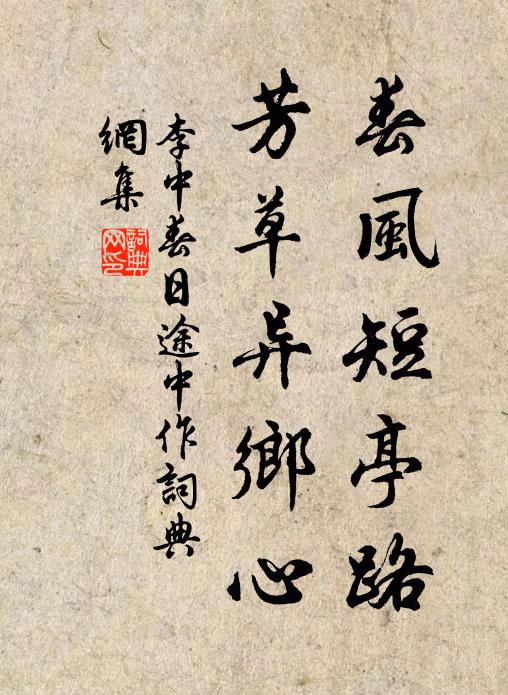 春風短亭路
芳草异鄉心
李中春日途中作詞典
網集
詞典网印